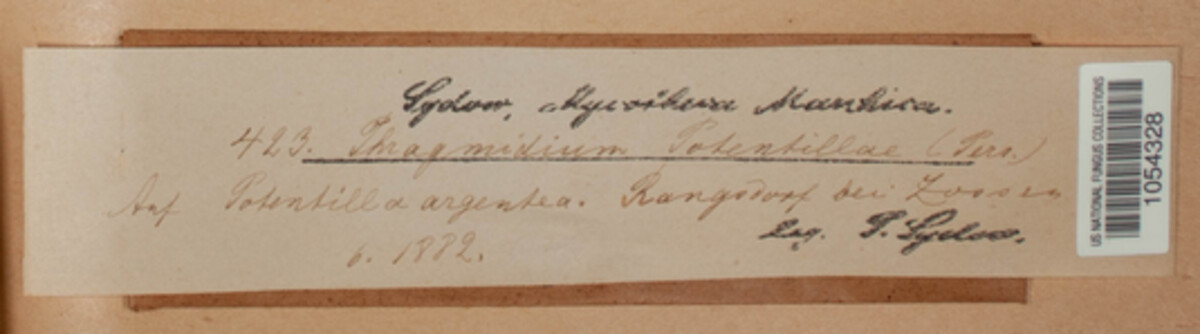 Sydow, Mycotheca Marchica.
423. Phragmidium Potentillae (Pers.)
Auf Potentilla argentea. Rangsdorf bei Zossen
Leg. P. Sydow.
6. 1882.
US NATIONAL FUNGUS COLLECTIONS
1054328